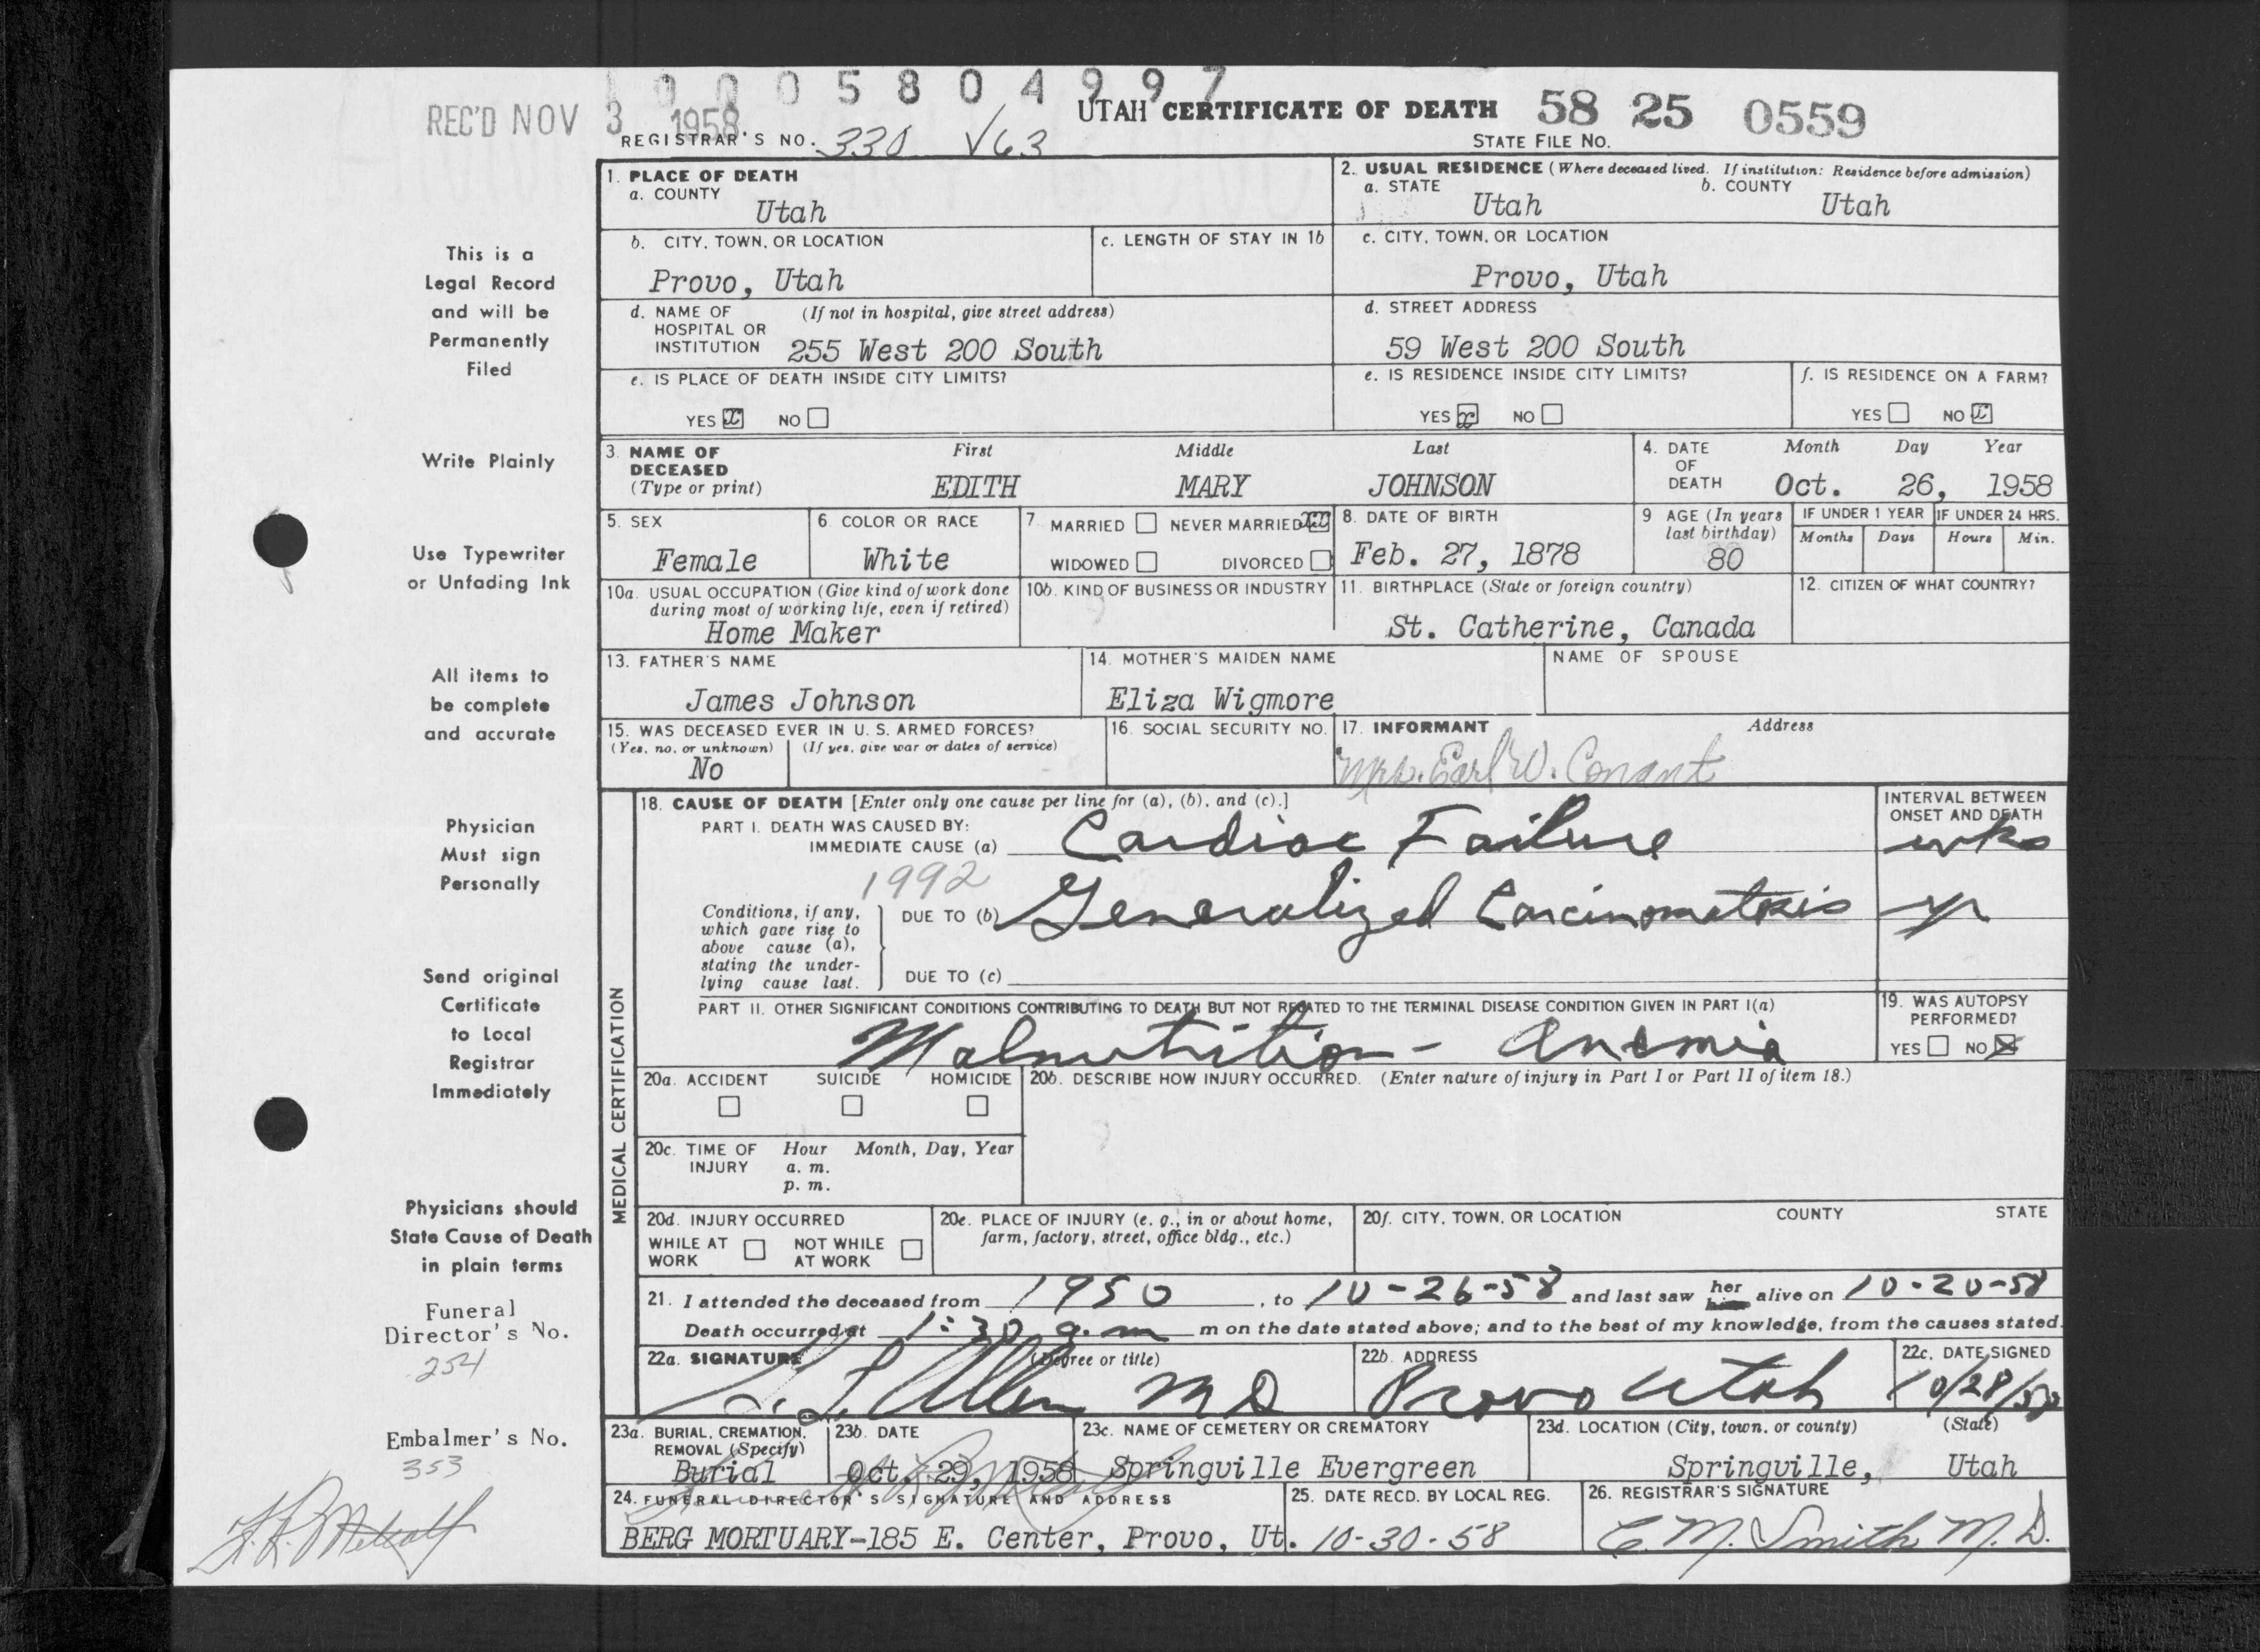 1 0 0 0 5 8 0 4 9 9 7
REC'D NOV 3 1958
UTAH CERTIFICATE OF DEATH 58 25 0559
REGISTRAR'S NO. 330 V63
STATE FILE NO.
1. PLACE OF DEATH
a. COUNTY
Utah
2. USUAL RESIDENCE (Where deceased lived. If institution: Residence before admission)
a. STATE b. COUNTY
Utah Utah
b. CITY, TOWN, OR LOCATION
Provo, Utah
c. LENGTH OF STAY IN 1b
c. CITY, TOWN, OR LOCATION
Provo, Utah
d. NAME OF (If not in hospital, give street address)
HOSPITAL OR
INSTITUTION 255 West 200 South
d. STREET ADDRESS
59 West 200 South
e. IS PLACE OF DEATH INSIDE CITY LIMITS?
YES x NO
e. IS RESIDENCE INSIDE CITY LIMITS?
YES x NO
f. IS RESIDENCE ON A FARM?
YES NO x
3. NAME OF DECEASED
(Type or print)
First Middle Last
EDITH MARY JOHNSON
4. DATE OF DEATH
Month Day Year
Oct. 26, 1958
5. SEX
Female
6. COLOR OR RACE
White
7. MARRIED NEVER MARRIED xx
WIDOWED DIVORCED
8. DATE OF BIRTH
Feb. 27, 1878
9 AGE (In years
last birthday)
80
IF UNDER 1 YEAR IF UNDER 24 HRS.
Months Days Hours Min.
10a. USUAL OCCUPATION (Give kind of work done
during most of working life, even if retired)
Home Maker
10b. KIND OF BUSINESS OR INDUSTRY
11. BIRTHPLACE (State or foreign country)
St. Catherine, Canada
12. CITIZEN OF WHAT COUNTRY?
13. FATHER'S NAME
James Johnson
14. MOTHER'S MAIDEN NAME
Eliza Wigmore
NAME OF SPOUSE
15. WAS DECEASED EVER IN U. S. ARMED FORCES?
(Yes, no, or unknown) (If yes, give war or dates of service)
No
16. SOCIAL SECURITY NO.
17. INFORMANT Address
Mrs. Earl W. Conant
MEDICAL CERTIFICATION
18. CAUSE OF DEATH [Enter only one cause per line for (a), (b), and (c).]
PART I. DEATH WAS CAUSED BY:
IMMEDIATE CAUSE (a) Cardiac Failure
INTERVAL BETWEEN
ONSET AND DEATH
wks
1992
Conditions, if any,
which gave rise to
above cause (a),
stating the under-
lying cause last.
DUE TO (b) Generalized Carcinomatosis yr
DUE TO (c)
PART II. OTHER SIGNIFICANT CONDITIONS CONTRIBUTING TO DEATH BUT NOT RELATED TO THE TERMINAL DISEASE CONDITION GIVEN IN PART I(a)
Malnutrition - Anemia
19. WAS AUTOPSY
PERFORMED?
YES NO X
20a. ACCIDENT SUICIDE HOMICIDE
20b. DESCRIBE HOW INJURY OCCURRED. (Enter nature of injury in Part I or Part II of item 18.)
20c. TIME OF INJURY
Hour Month, Day, Year
a. m.
p. m.
20d. INJURY OCCURRED
WHILE AT WORK NOT WHILE AT WORK
20e. PLACE OF INJURY (e. g., in or about home,
farm, factory, street, office bldg., etc.)
20f. CITY, TOWN, OR LOCATION COUNTY STATE
21. I attended the deceased from 1950, to 10-26-58 and last saw her him alive on 10-20-58
Death occurred at 1:30 a.m m on the date stated above; and to the best of my knowledge, from the causes stated.
22a. SIGNATURE (Degree or title)
Allen M D
22b. ADDRESS
Provo Utah
22c. DATE SIGNED
10/28/58
23a. BURIAL, CREMATION,
REMOVAL (Specify)
Burial
23b. DATE
Oct. 29, 1958
23c. NAME OF CEMETERY OR CREMATORY
Springville Evergreen
23d. LOCATION (City, town, or county) (State)
Springville, Utah
24. FUNERAL DIRECTOR'S SIGNATURE AND ADDRESS
BERG MORTUARY-185 E. Center, Provo, Ut.
25. DATE RECD. BY LOCAL REG.
10-30-58
26. REGISTRAR'S SIGNATURE
C. M. Smith M. D.
This is a
Legal Record
and will be
Permanently
Filed
Write Plainly
Use Typewriter
or Unfading Ink
All items to
be complete
and accurate
Physician
Must sign
Personally
Send original
Certificate
to Local
Registrar
Immediately
Physicians should
State Cause of Death
in plain terms
Funeral
Director's No.
254
Embalmer's No.
353
Metcalf